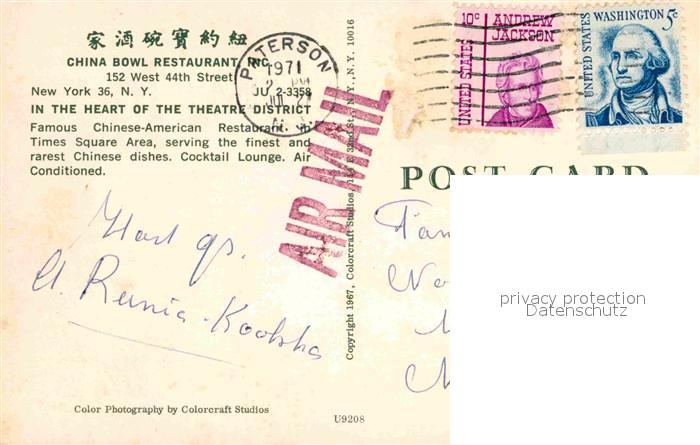 家酒碗寶約紐
CHINA BOWL RESTAURANT, INC.
152 West 44th Street
New York 36, N. Y. JU 2-3358
IN THE HEART OF THE THEATRE DISTRICT
Famous Chinese-American Restaurant in
Times Square Area, serving the finest and
rarest Chinese dishes. Cocktail Lounge. Air
Conditioned.
PATERSON
1971
2 PM
AIR MAIL
Copyright 1967, Colorcraft Studios, E 32nd St., N.Y., N.Y. 10016
10c ANDREW
JACKSON
UNITED STATES
WASHINGTON 5c
UNITED STATES
POST CARD
privacy protection
Datenschutz
Hart gr.
Color Photography by Colorcraft Studios
U9208